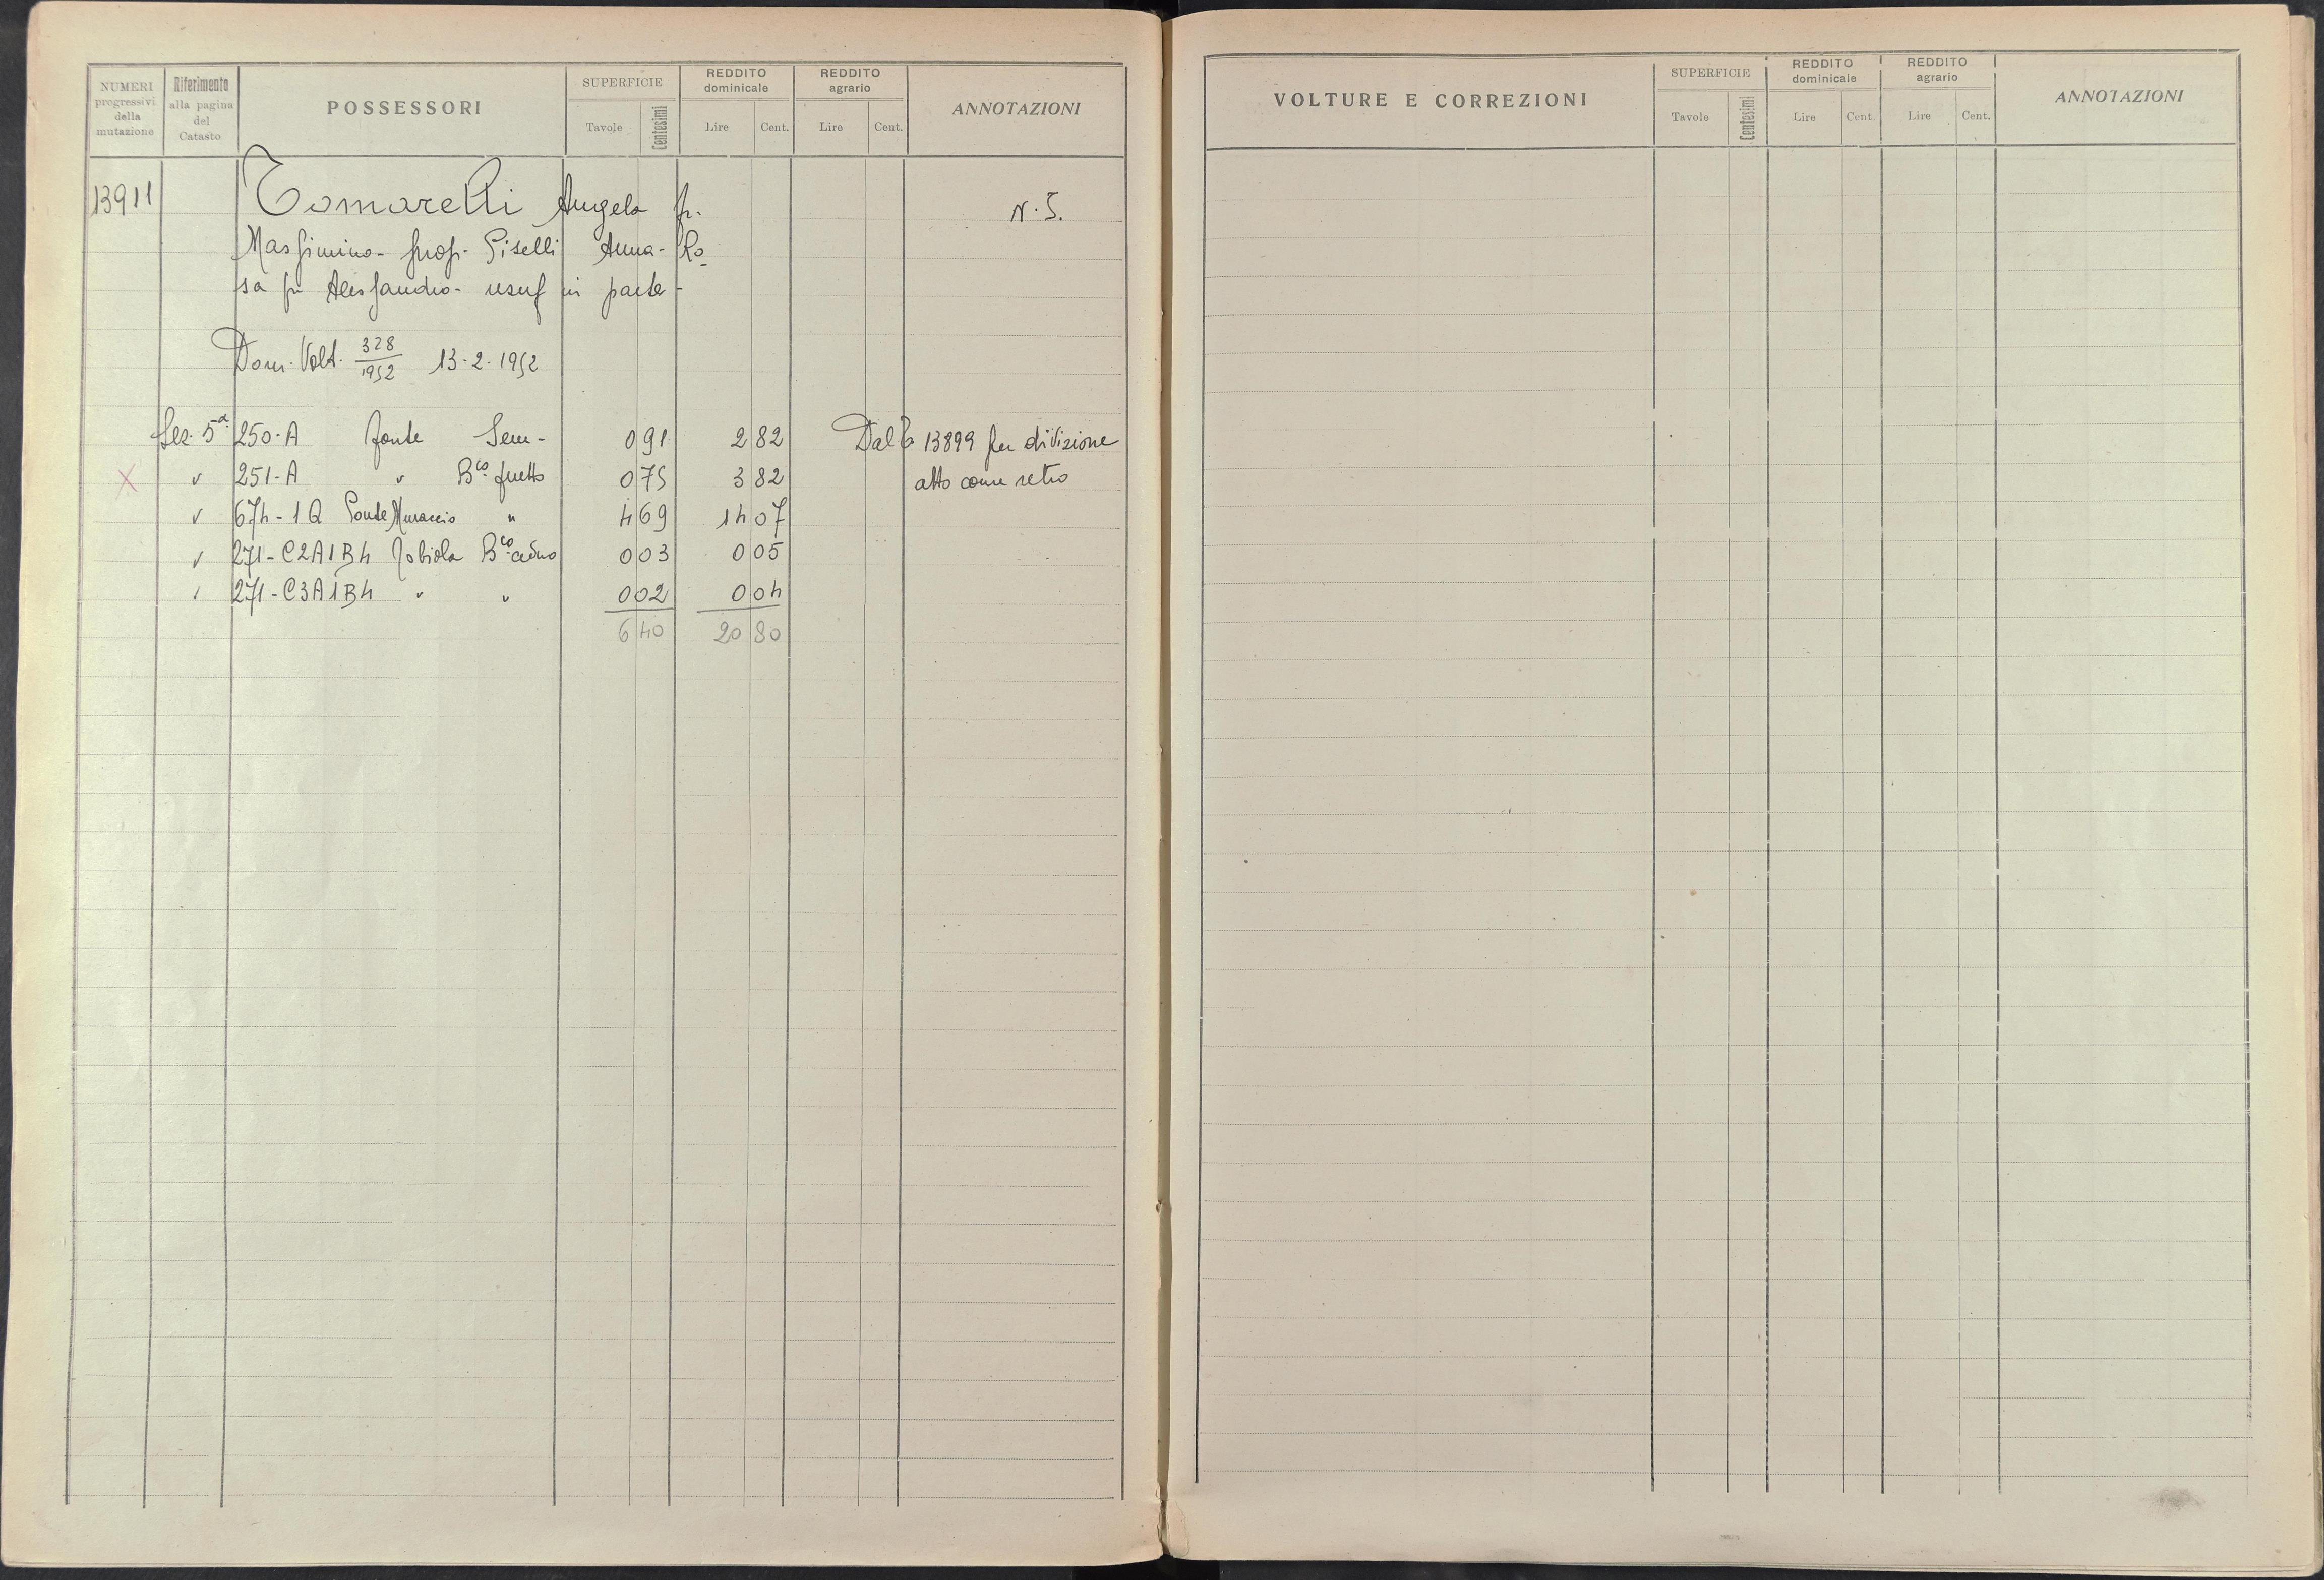 NUMERI progressivi della mutazione | Riferimento alla pagina del Catasto | POSSESSORI | SUPERFICIE Tavole Centesimi | REDDITO dominicale Lire Cent. | REDDITO agrario Lire Cent. | ANNOTAZIONI
13911 Tomarelli Angelo fu N. 5.
Massimino - prop. Piselli Anna - Ro
sa fu Alessandro - usuf in parte -
Dom. Volt. 328/1952 13-2-1952
Sez. 5ª 250-A Fonte Sem - 0 91 2 82 Dal 13899 per divisione
X " 251-A " Bco frutto 0 75 3 82 atto come retro
" 674-1Q Ponte Muraccio " 4 69 14 07
" 271-C2A1B4 Bco ceduo 0 03 0 05
" 271-C3A1B4 " " 0 02 0 04
6 40 20 80
VOLTURE E CORREZIONI | SUPERFICIE Tavole Centesimi | REDDITO dominicale Lire Cent. | REDDITO agrario Lire Cent. | ANNOTAZIONI